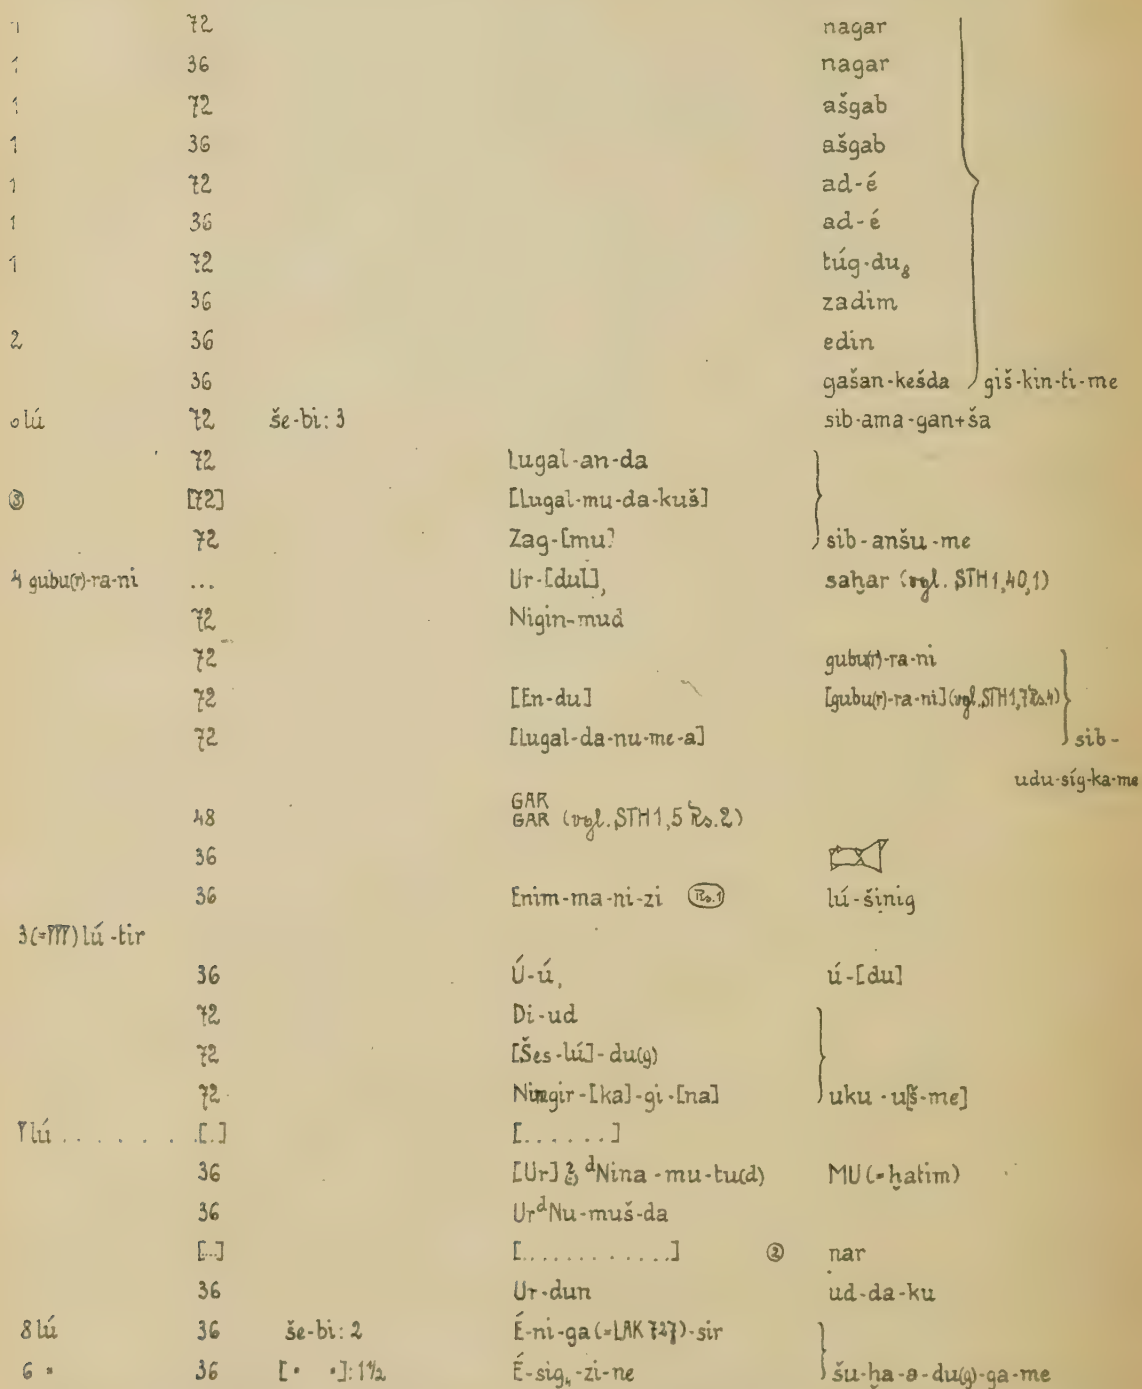 1 72 nagar
1 36 nagar
1 72 ašgab
1 36 ašgab
1 72 ad-é
1 36 ad-é
1 72 túg-du₈
36 zadim
2 36 edin
36 gašan-kešda giš-kin-ti-me
lú 72 še-bi: 3 sib-ama-gan+ša
72 Lugal-an-da
③ [72] [Lugal-mu-da-kuš]
72 Zag-[mu] sib-anšu-me
4 gubu(r)-ra-ni ... Ur-[dul], saḫar (vgl. STH 1,40,1)
72 Nigin-mud
72 gubu(r)-ra-ni
72 [En-du] [gubu(r)-ra-ni] (vgl. STH 1,7 Rs.4)
72 [Lugal-da-nu-me-a] sib-
udu-síg-ka-me
GAR
48 GAR (vgl. STH 1,5 Rs.2)
36
36 Enim-ma-ni-zi Rs.1 lú-šinig
3 (=𒐈) lú-tir
36 Ú-ú, ú-[du]
72 Di-ud
72 [Šes-lú]-du(g)
72 Ningir-[ka]-gi-[na] uku-u[š-me]
lú . . . . . . . [.] [. . . . . .]
36 [Ur] ? ᵈNina-mu-tu(d) MU (=ḫatim)
36 Urᵈ Nu-muš-da
[...] [. . . . . . . . . . . .] ② nar
36 Ur-dun ud-da-ku
8 lú 36 še-bi: 2 É-ni-ga (=LAK 727)-sir
6 " 36 [" "]: 1½ É-sig₄-zi-ne šu-ḫa-a-du(g)-ga-me